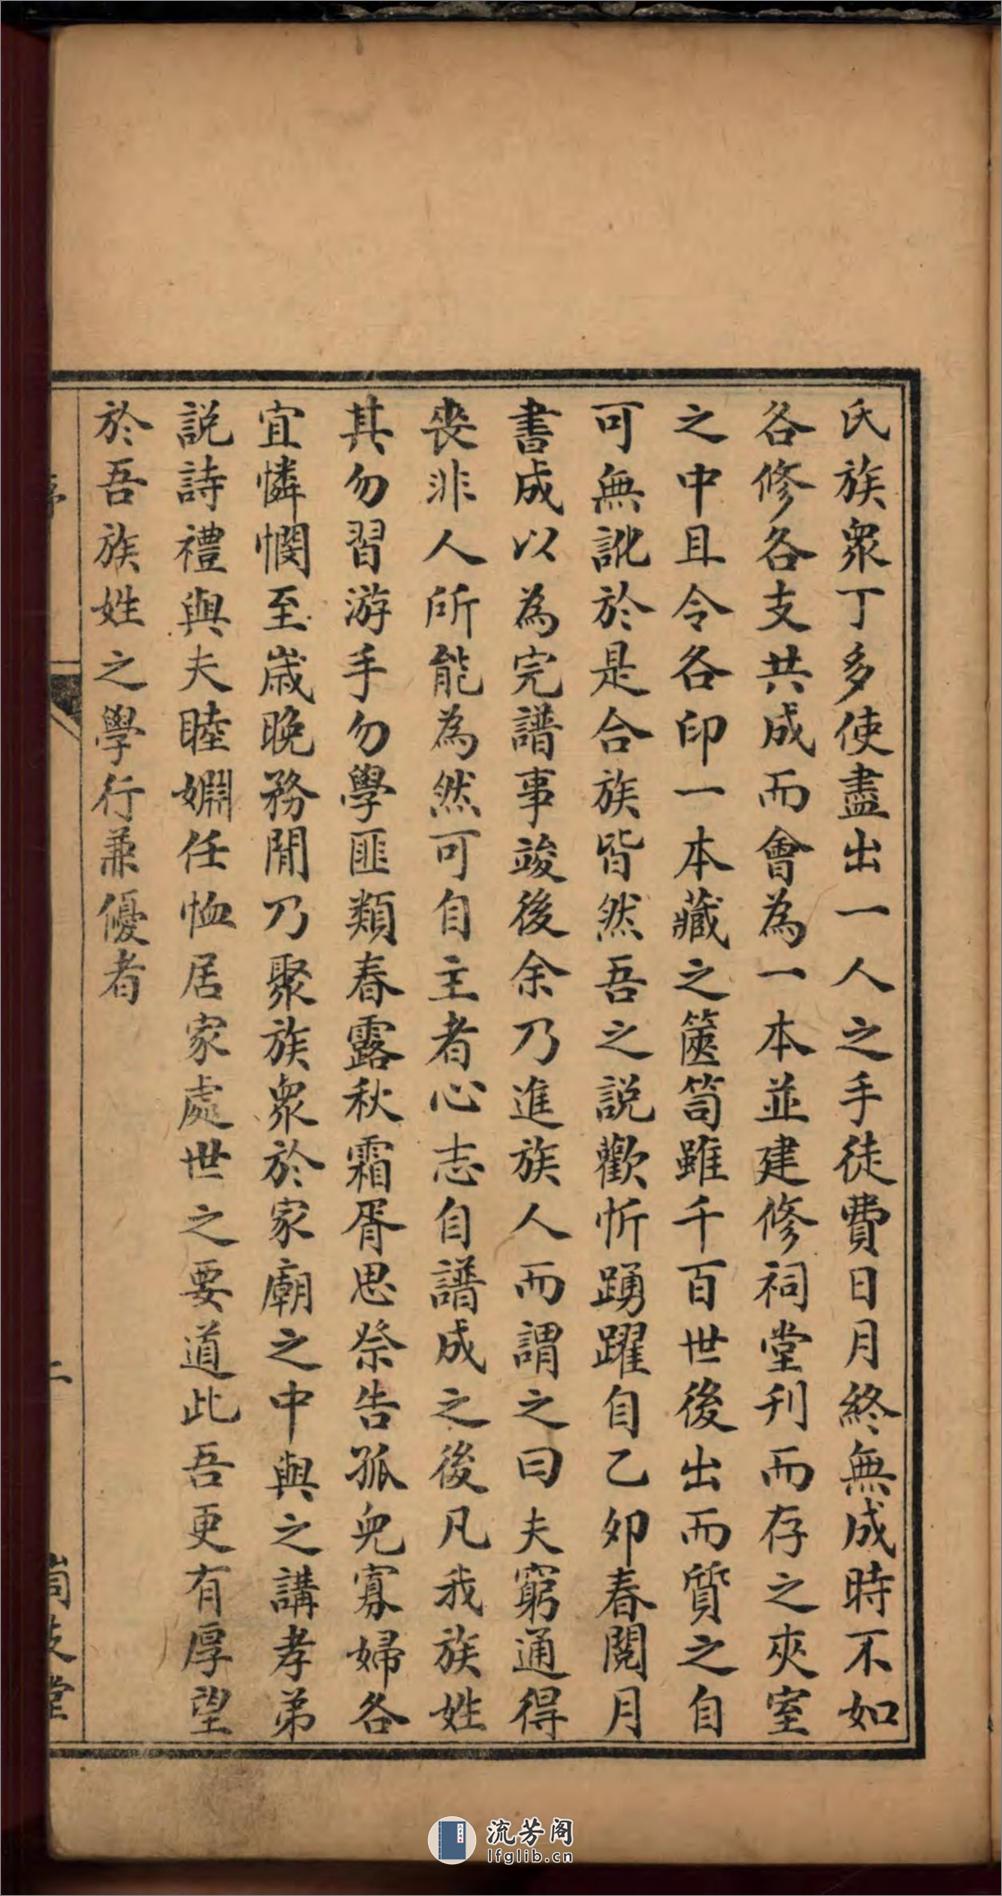 氏族衆丁多使盡出一人之手徒費日月終無成時不如
各修各支共成而會為一本並建修祠堂刊而存之夾室
之中且令各印一本藏之篋笥雖千百世後出而質之自
可無訛於是合族皆然吾之説歡忻踴躍自乙夘春閱月
書成以為完譜事竣後余乃進族人而謂之曰夫窮通得
喪非人所能為然可自主者心志自譜成之後凡我族姓
其勿習游手勿學匪類春露秋霜胥思祭告孤兒寡婦各
宜憐憫至歲晚務閒乃聚族衆於家廟之中與之講孝弟
説詩禮與夫睦婣任恤居家處世之要道此吾更有厚望
於吾族姓之學行兼優者
二
堂
流芳阁
lfglib.cn